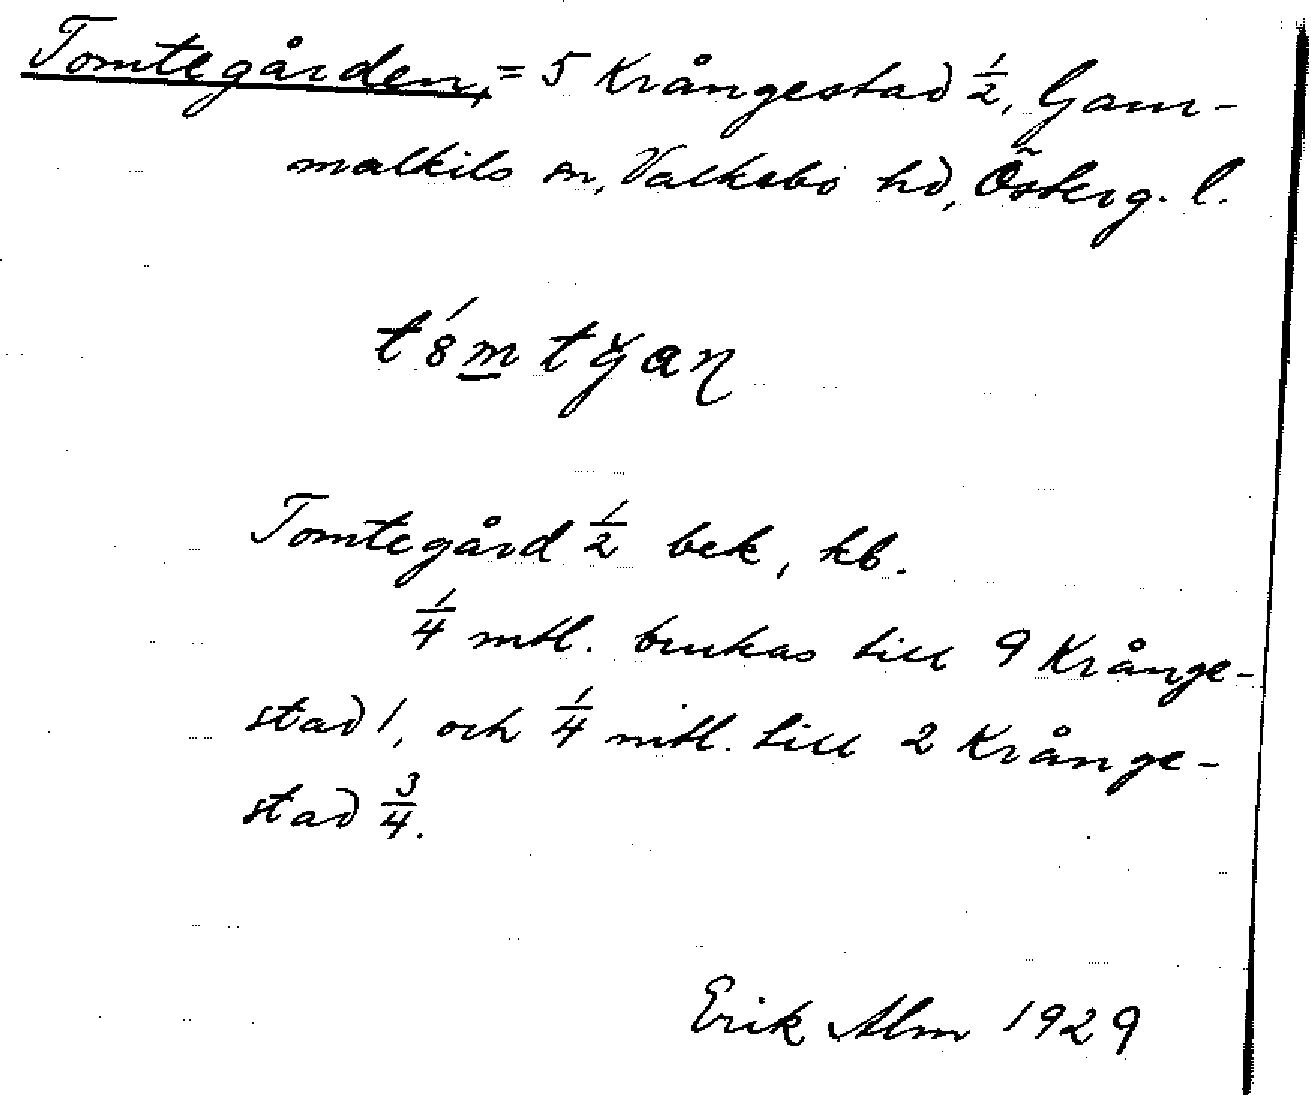 Tomtegården, = 5 Krångestad 1/2, Gam-
malkils sn, Valkebo hd, Österg. l.
Tomtegård 1/2 bek, kb.
1/4 mtl. brukas till 9 Krånge-
stad 1, och 1/4 mtl. till 2 Krånge-
stad 3/4.
Erik Alm 1929